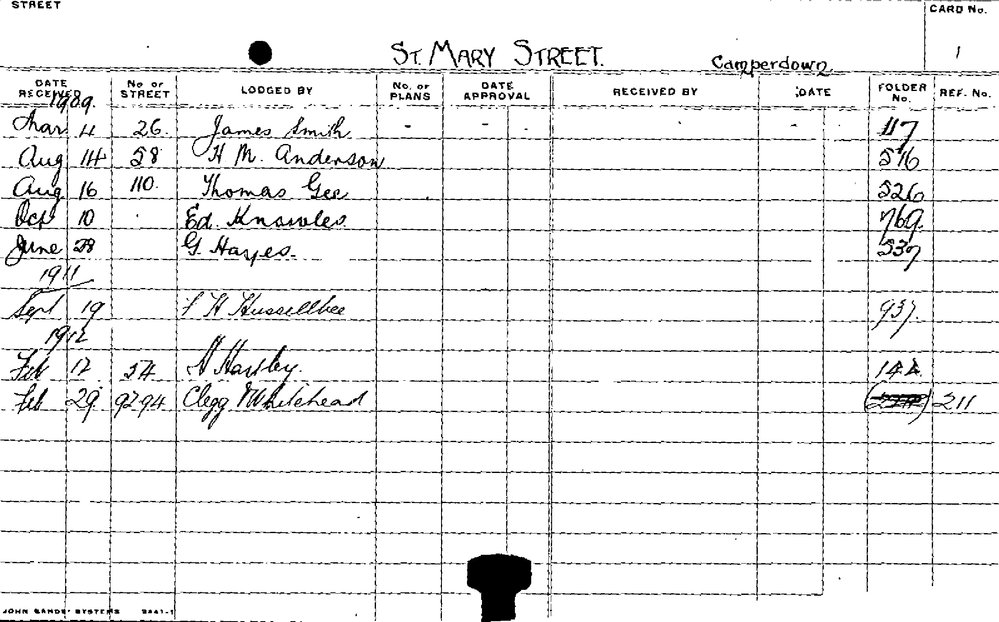 STREET
CARD No.
ST. MARY STREET. Camperdown 1
DATE RECEIVED No OF STREET LODGED BY No. OF PLANS DATE APPROVAL RECEIVED BY DATE FOLDER No. REF. No.
1909.
Mar 4 26. James Smith - - - - - 117
Aug 14 58 H M. Anderson 516
Aug 16 110. Thomas Gee 526
Oct 10 Ed. Knowles. 769.
June 28 G. Hayes. 537
1911
Sept 19 H Hussellbee 937.
1912
Feb 12 54 H Hartley. 144.
Feb 29 92-94 Clegg & Whitehead 211
JOHN SANDS' SYSTEMS 5441-1